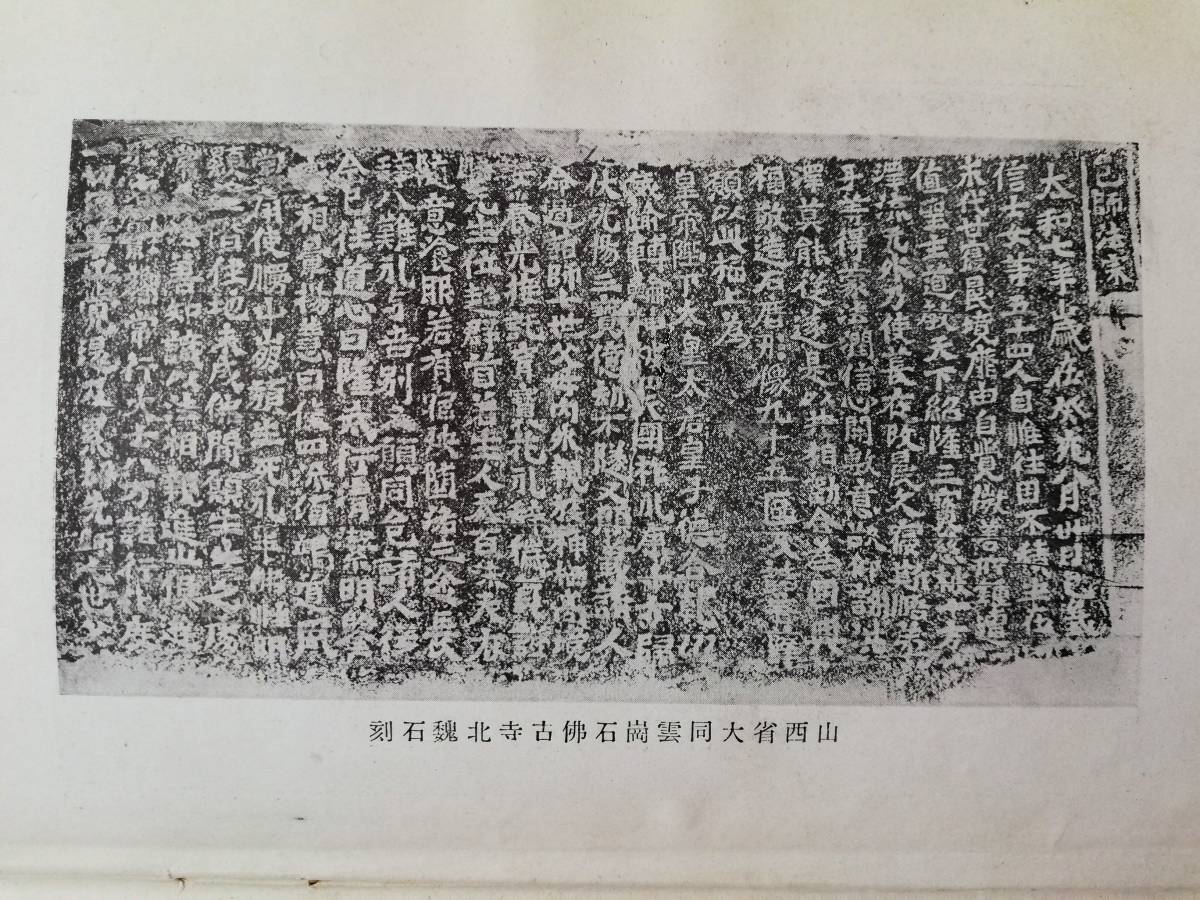 邑師法宗
太和七年歲在癸亥八月卅日邑義
信士女等五十四人自惟往因不積生在
末代甘寢昏境靡由自覺微善所鍾遭
值聖主道教天下紹隆三寶慈被十方
澤流无外乃使長夜改昏久寢斯悟弟
子等得蒙法潤信心開敷意欲仰酬洪
澤莫能從遂是以共相勸合為國興
福敬造石 形像九十五區及諸菩薩
願以此福上為
皇帝陛下太皇太后皇子德合乾坤
威踰轉輪神被四天國祚永康十方歸
伏光揚三寶億劫不墜又願義諸人
命過諸師七世父母內外親族神栖高境
安養光接託育寶花永辭穢質證
悟无生位超群首若生人天百味天衣
隨意飡服若有宿殃墮洛三塗長
辭八難永与苦別又願同邑諸人從
今已往道心日隆戒行清潔明鑒
實相暈揚慧日使四流傾竭道風
堂扇使慢山崩頹生死永畢佛性明
顯登階住地未成佛間願生生之處
常為法善知識以法相親進止俱遊
常行大士八万諸行化度
一切 正覺逮及累劫先師七世父
山西省大同雲崗石佛古寺北魏石刻